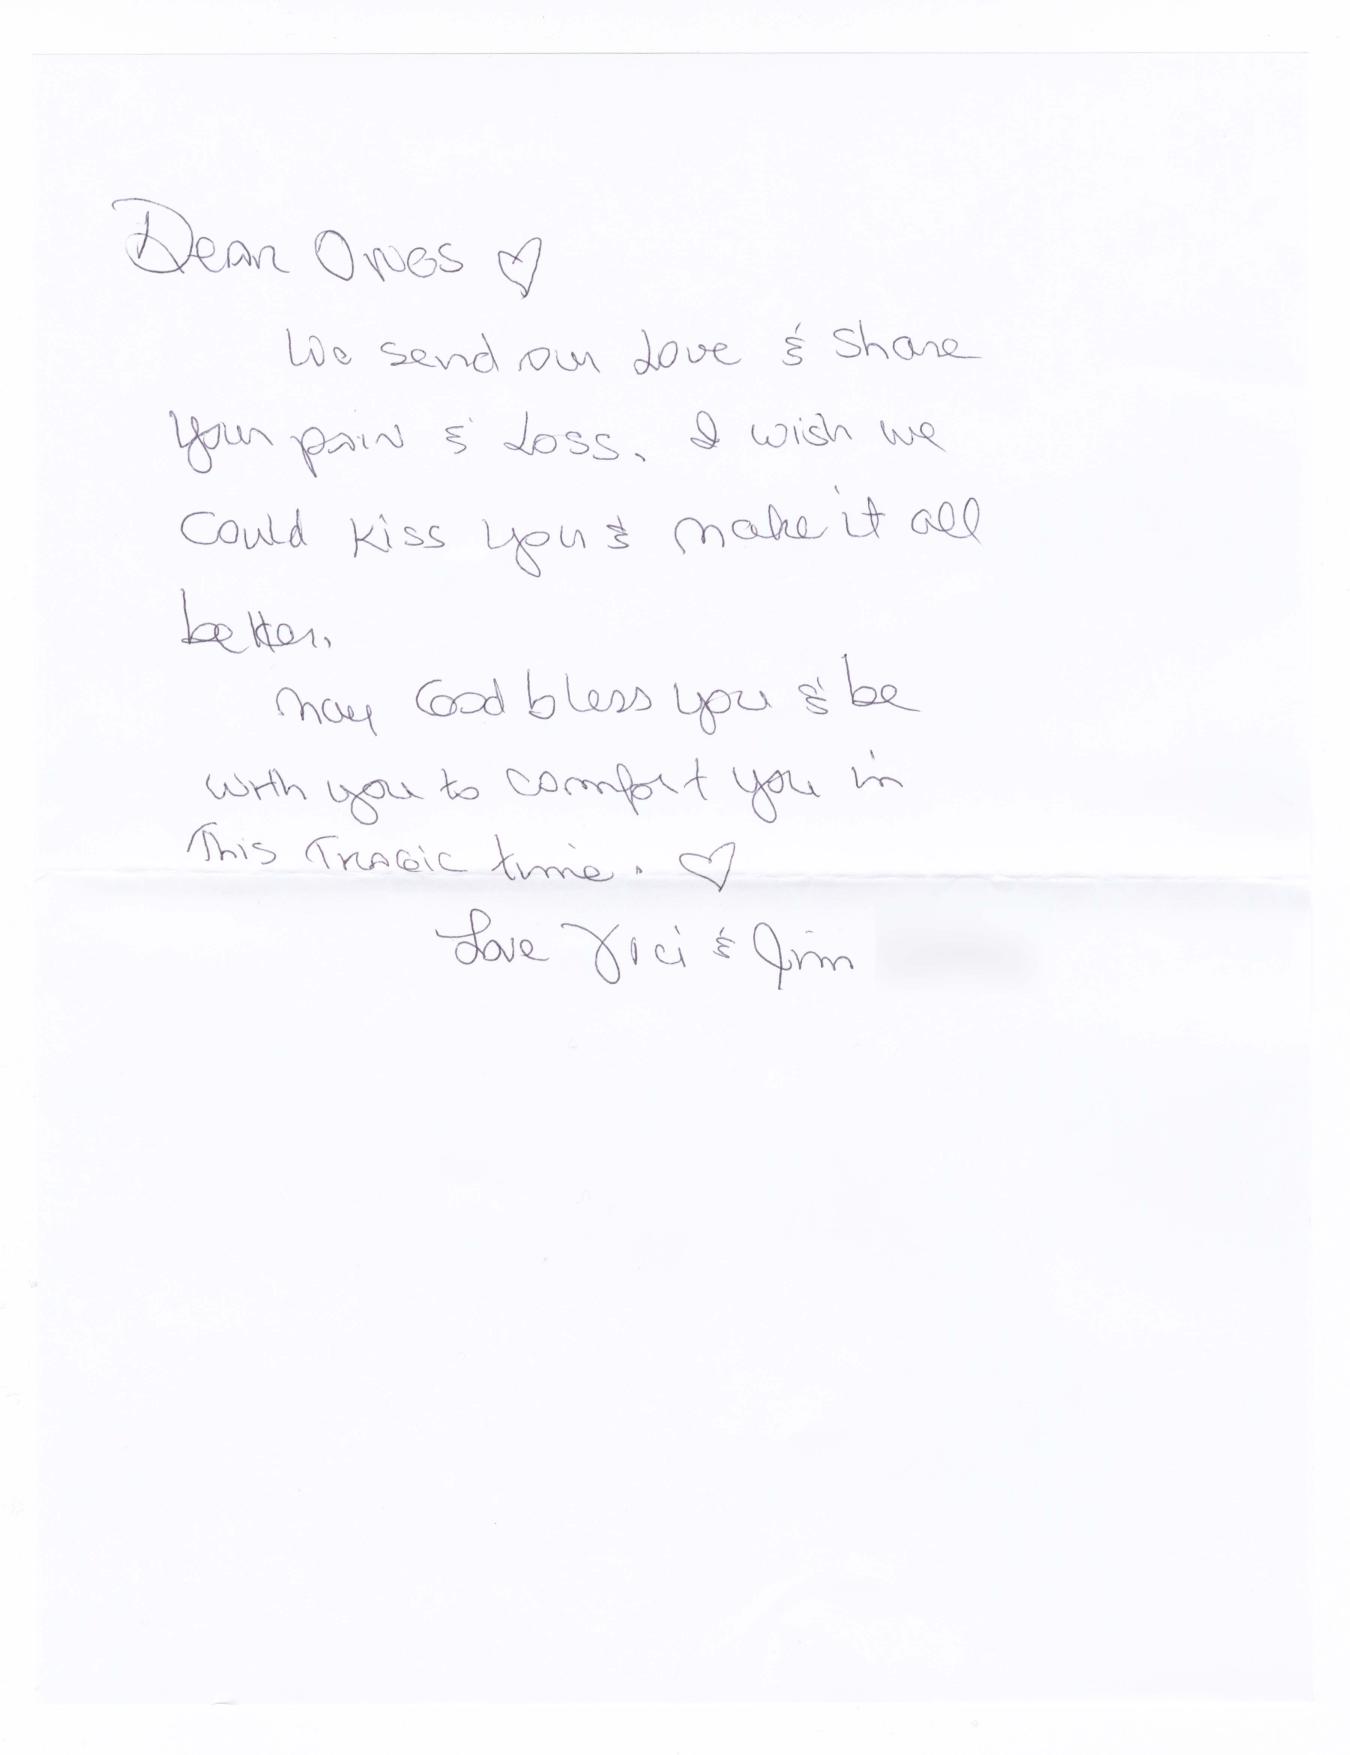 Dear Ones ♡
We send our Love & Share
Your pain & Loss. I wish we
Could kiss you & make it all
better.
May God bless you & be
with you to comfort you in
This Tragic time. ♡
Love Vici & Jim